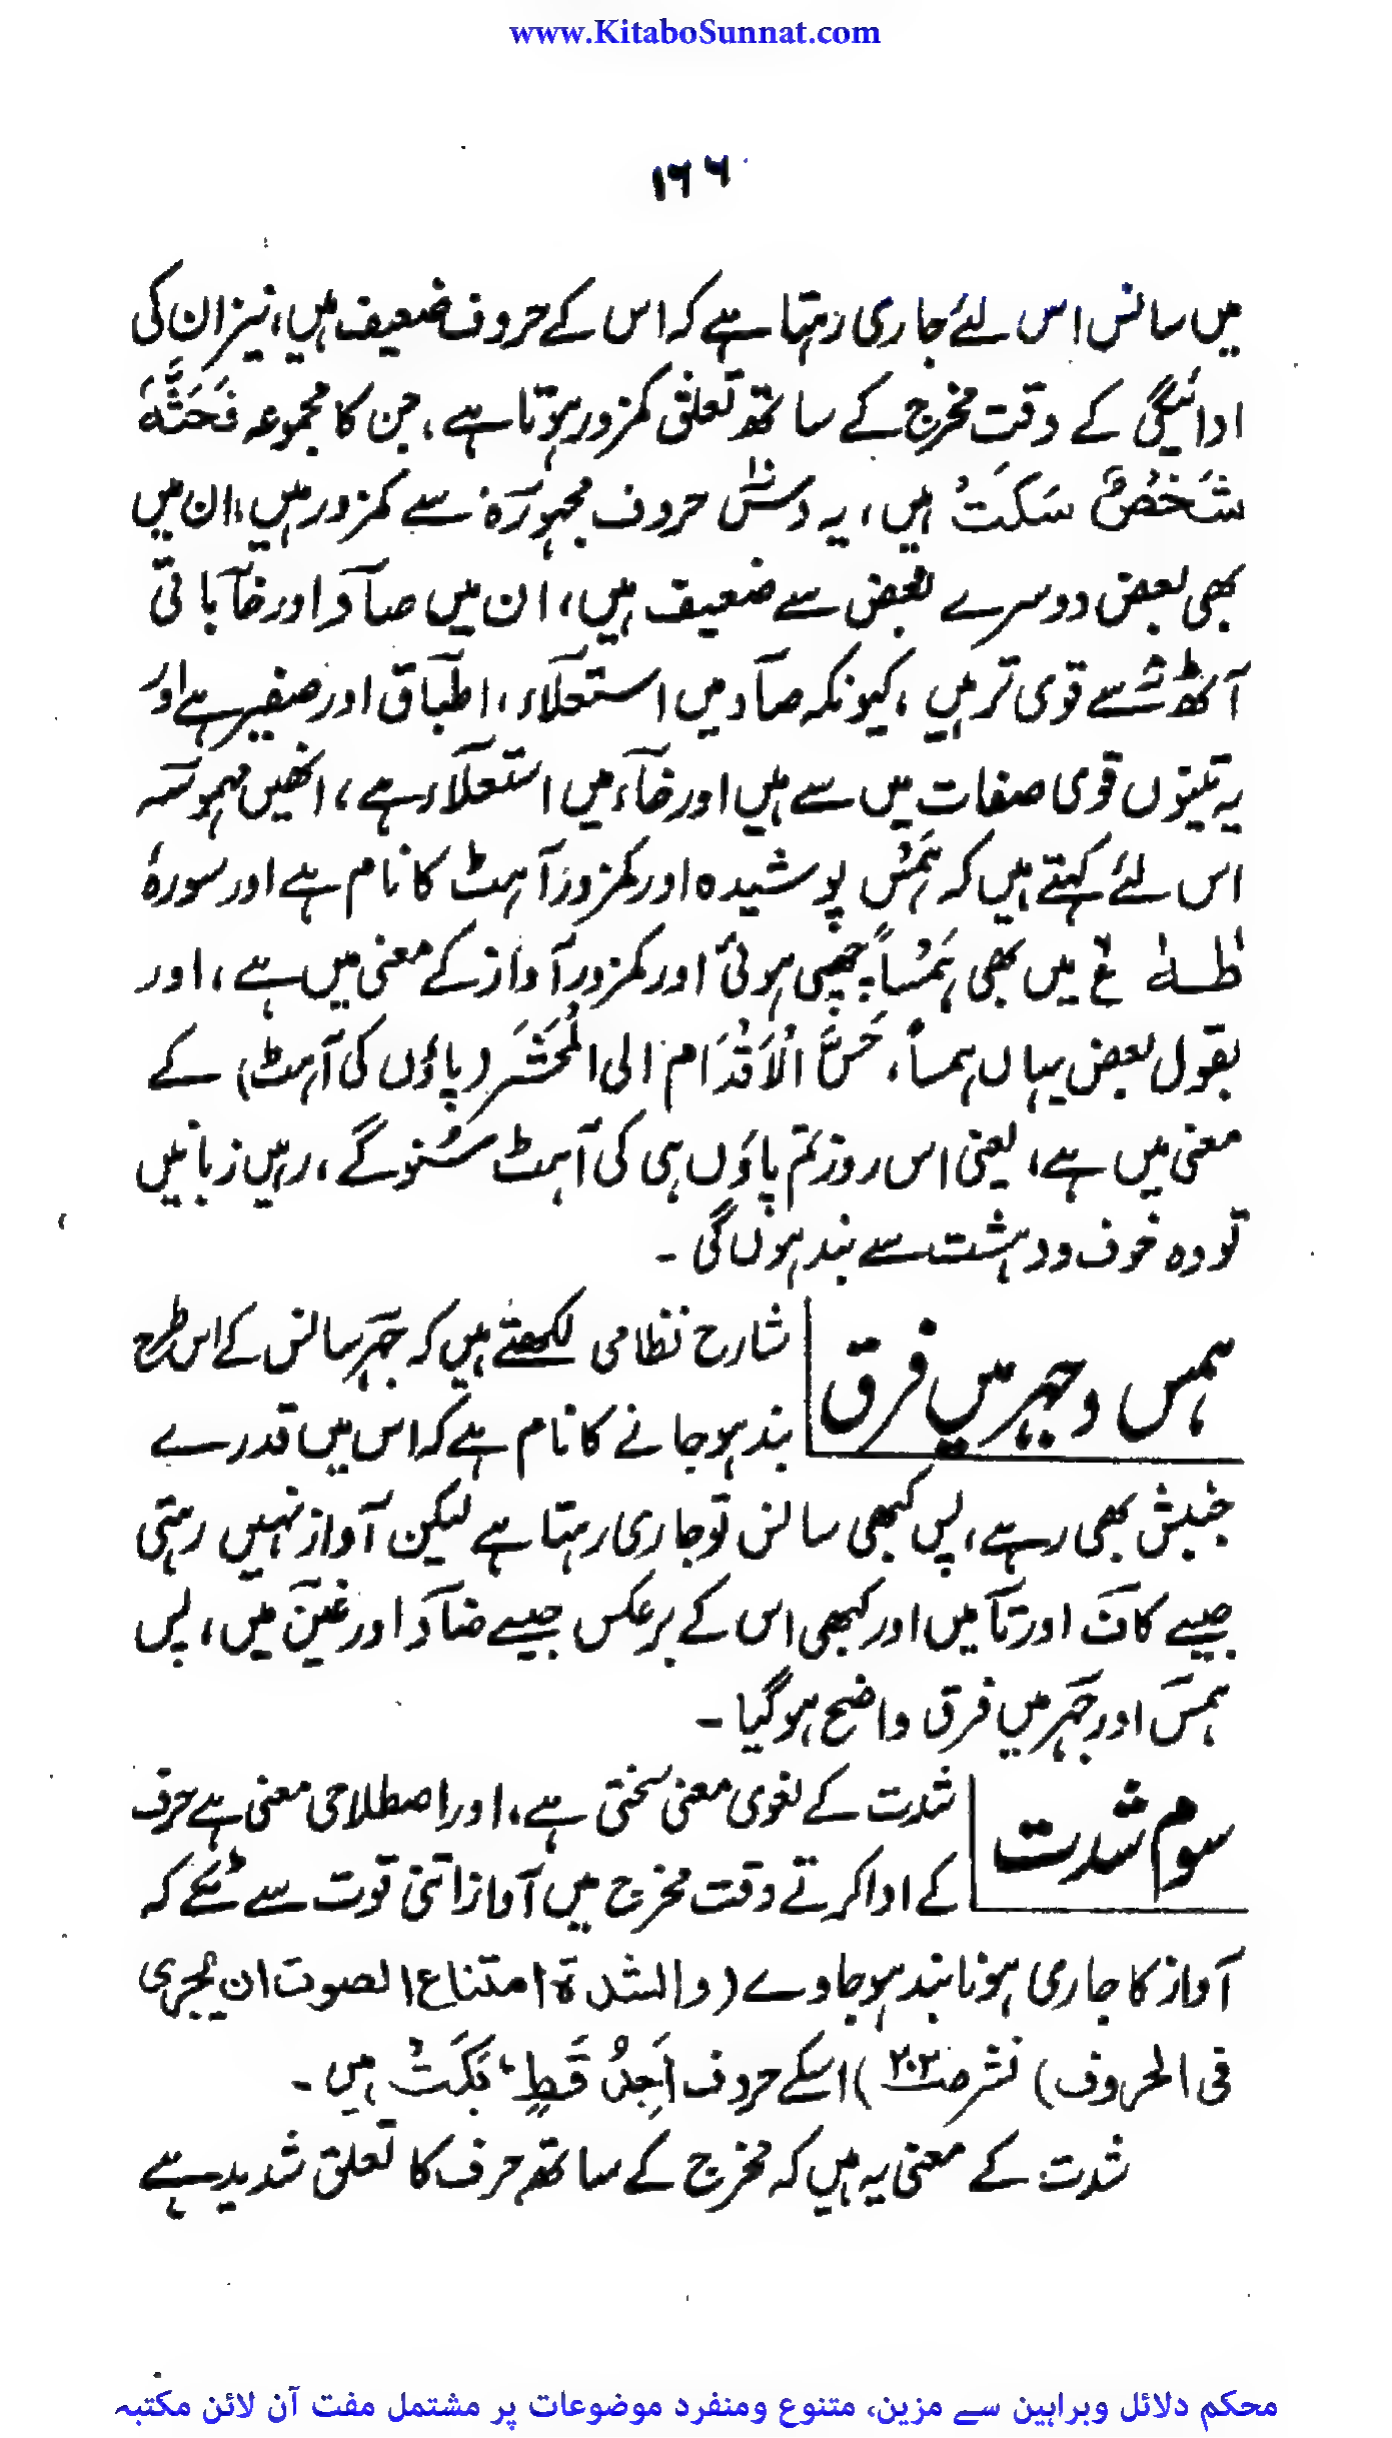 www.KitaboSunnat.com
١٦٦
میں سانس اس لئے جاری رہتا ہے کہ اس کے حروف ضعیف ہیں، نیز ان کی
ادائیگی کے وقت مخرج کے ساتھ تعلق کمزور ہوتا ہے، جن کا مجموعہ فَحَثَّهٗ
شَخْصٌ سَکَتَ ہیں، یہ دسؔ حروف مجہورہ سے کمزور ہیں، ان میں
بھی بعض دوسرے بعض سے ضعیف ہیں، ان میں صآد اور خآ باقی
آٹھ سے قوی تر ہیں، کیونکہ صآد میں استعلآء، اطبآق اور صفیر ہے اور
یہ تینوں قوی صفات میں سے ہیں اور خآء میں استعلآء ہے، انھیں مہموسہ
اس لئے کہتے ہیں کہ ہَمْس پوشیدہ اور کمزور آہٹ کا نام ہے اور سورۂ
طٰہٰ ع میں بھی ہَمْساً چھپی ہوئی اور کمزور آواز کے معنی میں ہے، اور
بقول بعض یہاں ہمساً، حَسَّ الْاَقْدَام الی الْمَحْشَر (پاؤں کی آہٹ) کے
معنی میں ہے، یعنی اس روز تم پاؤں ہی کی آہٹ سنو گے، رہیں زبانیں
تو وہ خوف و دہشت سے بند ہوں گی ۔
ہمس و جہر میں فرق
شارح نظامی لکھتے ہیں کہ جہر سانس کے اس طرح
بند ہو جانے کا نام ہے کہ اس میں قدرے
جنبش بھی رہے، پس کبھی سانس تو جاری رہتا ہے لیکن آواز نہیں رہتی
جیسے کاف اور تآ میں اور کبھی اس کے برعکس جیسے ضآد اور غین میں، پس
ہمس اور جہر میں فرق واضح ہو گیا ۔
سوم شدت
شدت کے لغوی معنی سختی ہے، اور اصطلاحی معنی ہے حرف
کے ادا کرتے وقت مخرج میں آواز اتنی قوت سے ٹکے کہ
آواز کا جاری ہونا بند ہو جاوے (والشدة امتناع الصوت ان یجری
فی الحروف) نشر صـ ٢٠٢) اسکے حروف اَجِدُ قَطٍ بَکَتْ ہیں ۔
شدت کے معنی یہ ہیں کہ مخرج کے ساتھ حرف کا تعلق شدید ہے
محکم دلائل وبراہین سے مزین، متنوع ومنفرد موضوعات پر مشتمل مفت آن لائن مکتبہ